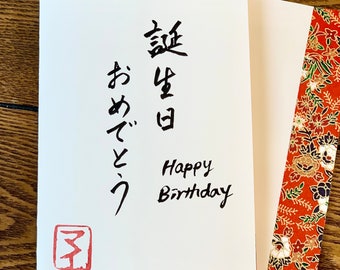 誕生日
おめでとう
Happy
Birthday